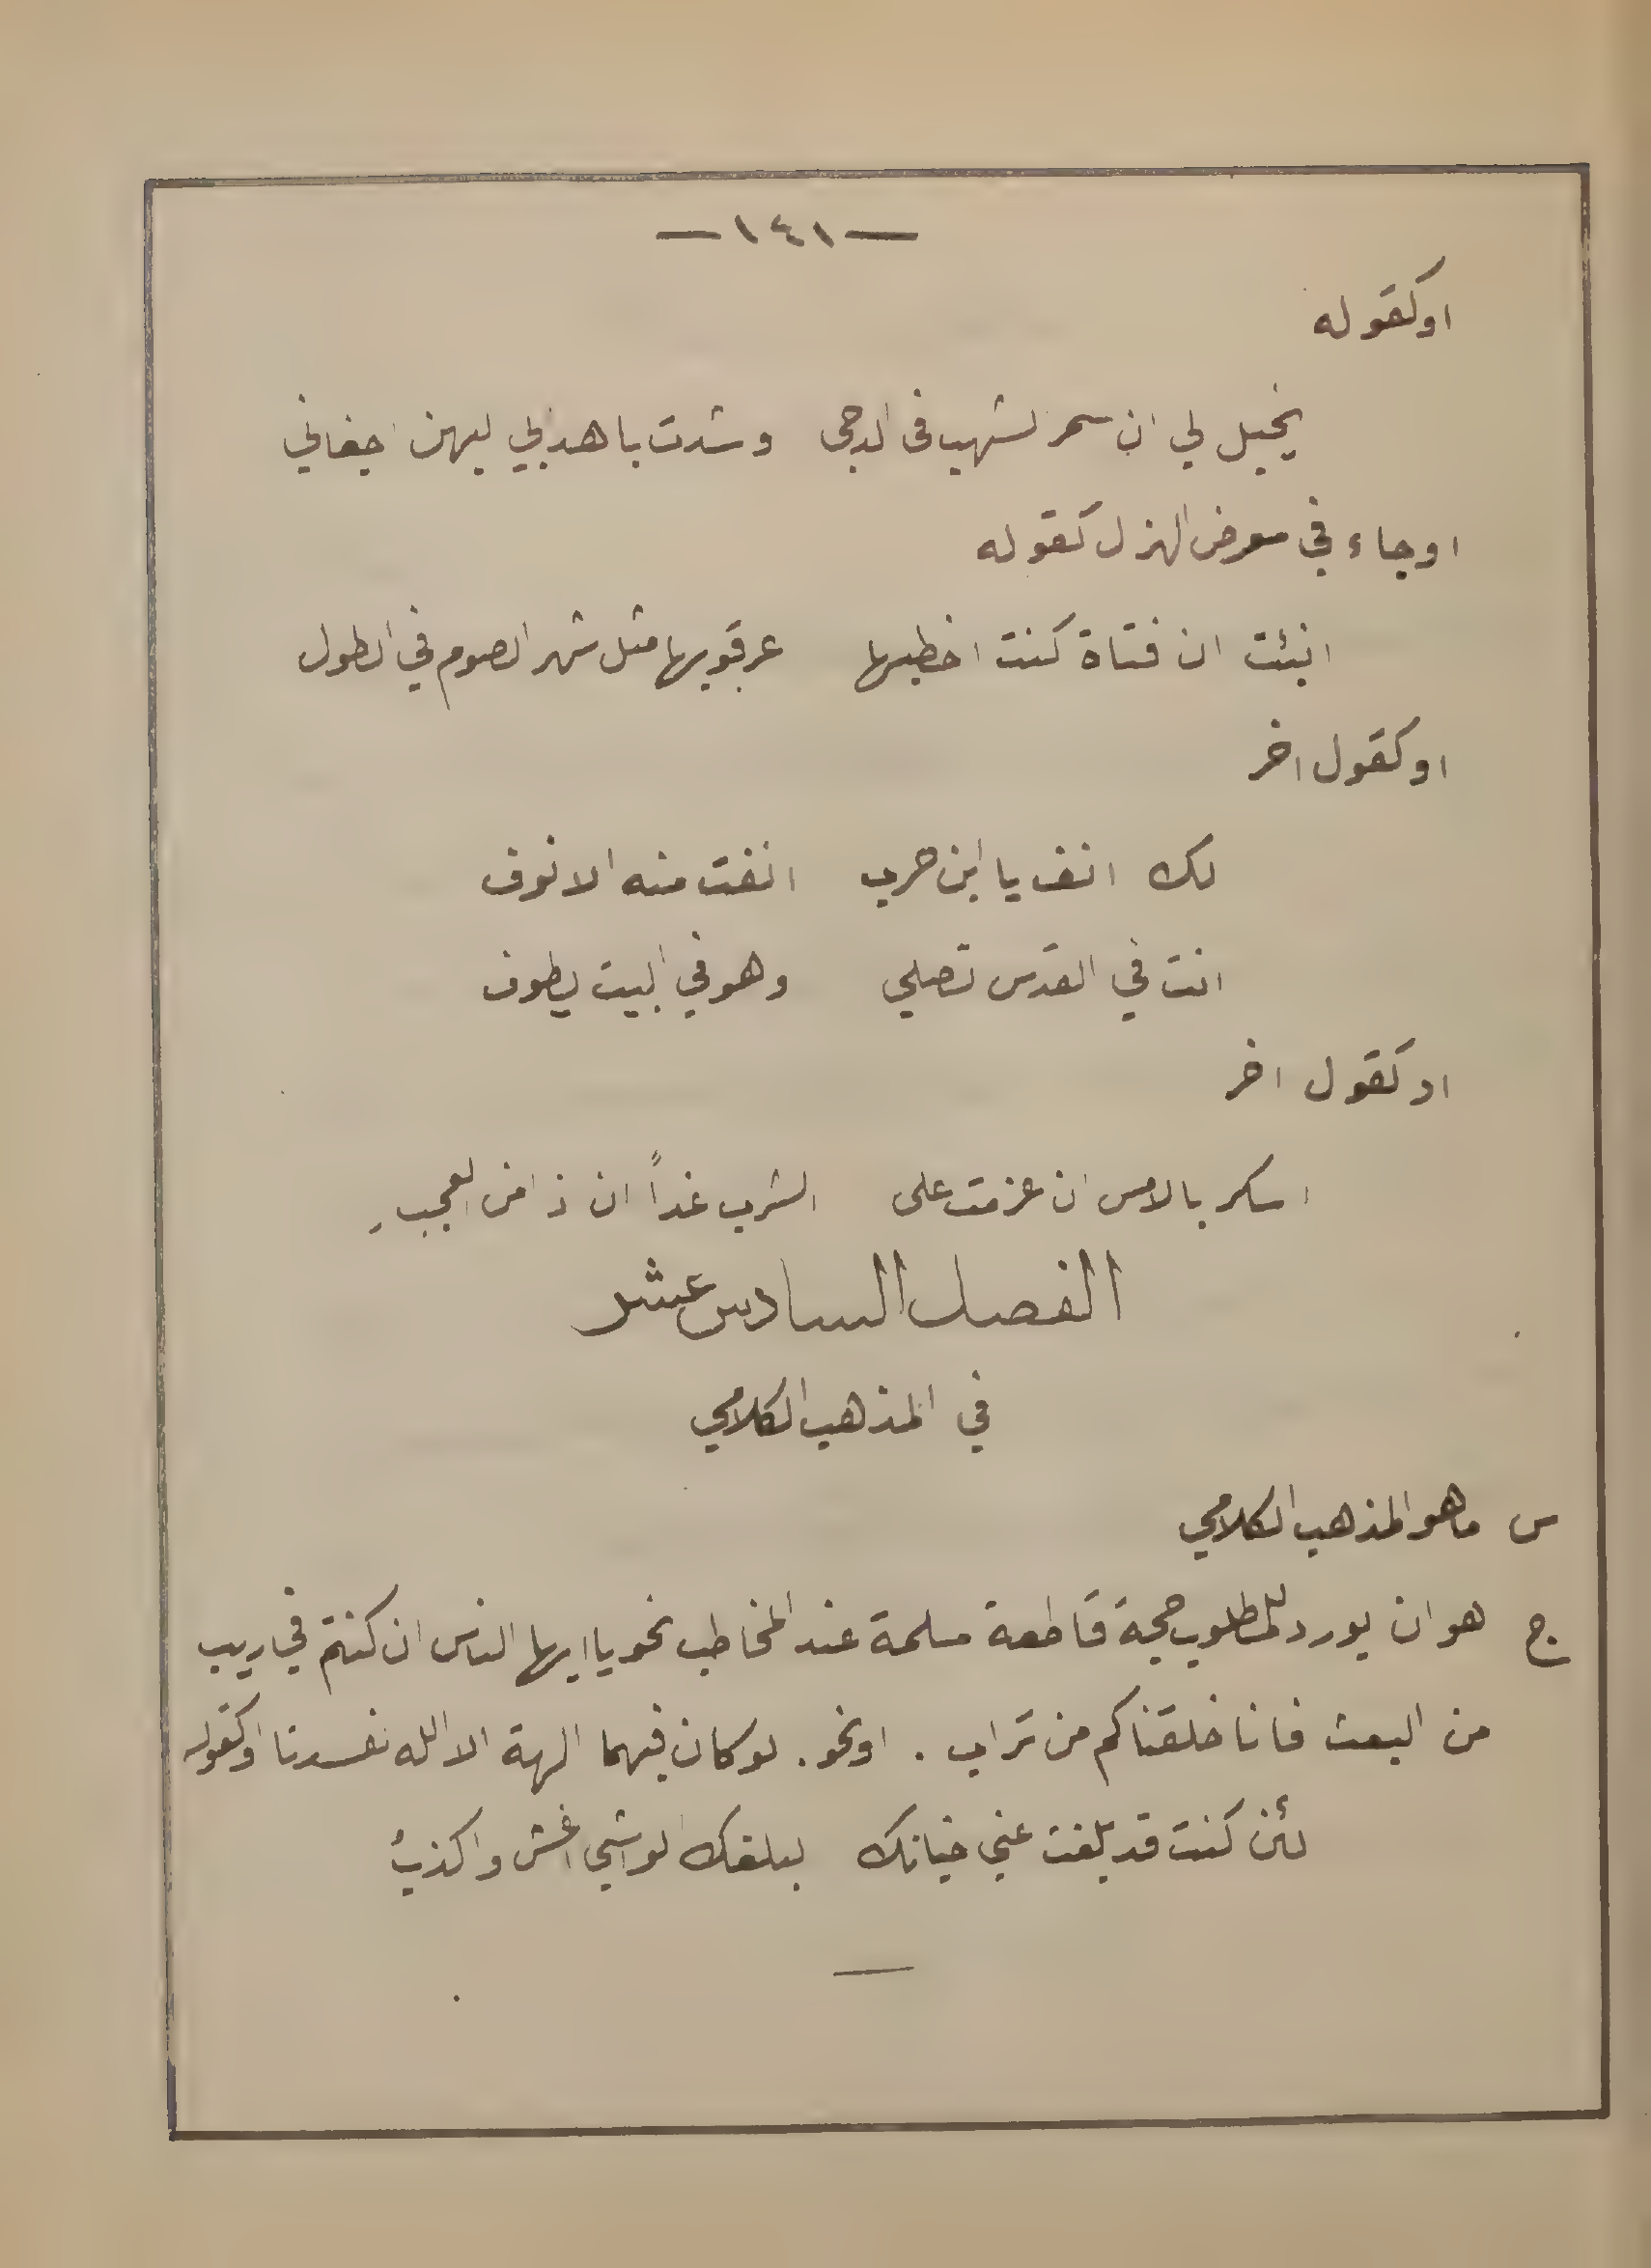 —١٤١—
او كقوله
يخيل لي ان سمر الشهب في الدجى وشدت باهدبي اليهن اجفاني
او جاء في معرض الهزل كقوله
انبئت ان فتاة كنت اخطبها عرقوبها مثل شهر الصوم في الطول
او كقول اخر
لك انف يا ابن حرب انفت منه الانوف
انت في القدس تصلي وهو في البيت يطوف
او كقول اخر
اسكر بالامس ان عزمت على الشرب غداً ان ذا من العجبِ
الفصل السادس عشر
في المذهب الكلامي
س ما هو المذهب الكلامي
ج هو ان يورد للمطلوب حجة قاطعة مسلمة عند المخاطب نحو يا ايها الناس ان كنتم في ريب
من البعث فانا خلقناكم من تراب . او نحو . لو كان فيهما الهة الا الله لفسدتا او كقوله
لئن كنت قد بلغت عني خيانك لمبلغك الواشي اغش واكذبُ